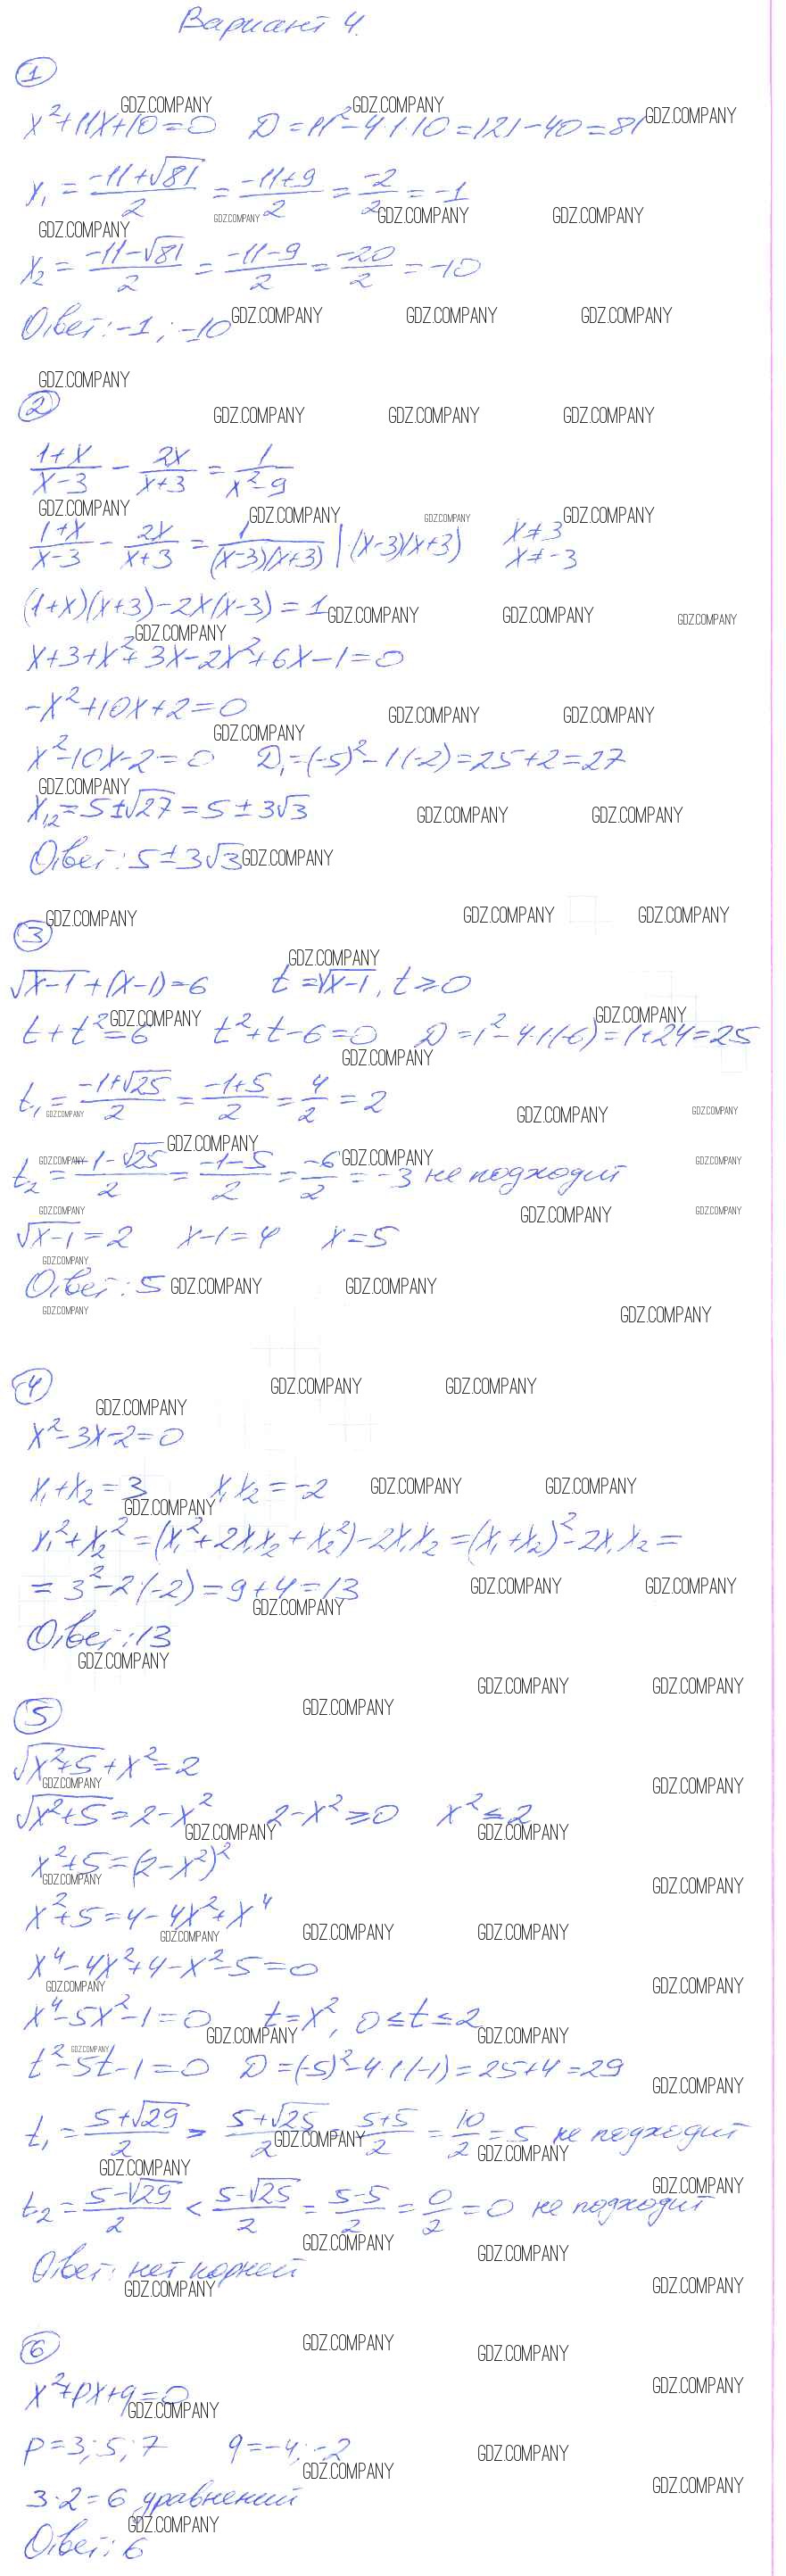 Вариант 4.
1
x²+11x+10=0 D=11²-4·1·10=121-40=81
x₁ = (-11+√81)/2 = (-11+9)/2 = -2/2 = -1
x₂ = (-11-√81)/2 = (-11-9)/2 = -20/2 = -10
Ответ: -1; -10
2
(1+x)/(x-3) - 2x/(x+3) = 1/(x²-9)
(1+x)/(x-3) - 2x/(x+3) = 1/((x-3)(x+3)) |·(x-3)(x+3) x≠3 x≠-3
(1+x)(x+3)-2x(x-3)=1
x+3+x²+3x-2x²+6x-1=0
-x²+10x+2=0
x²-10x-2=0 D₁=(-5)²-1·(-2)=25+2=27
x₁,₂=5±√27=5±3√3
Ответ: 5±3√3
3
√(x-1)+(x-1)=6 t=√(x-1), t≥0
t+t²=6 t²+t-6=0 D=1²-4·1·(-6)=1+24=25
t₁ = (-1+√25)/2 = (-1+5)/2 = 4/2 = 2
t₂ = (-1-√25)/2 = (-1-5)/2 = -6/2 = -3 не подходит
√(x-1)=2 x-1=4 x=5
Ответ: 5
4
x²-3x-2=0
x₁+x₂=3 x₁x₂=-2
x₁²+x₂²=(x₁²+2x₁x₂+x₂²)-2x₁x₂=(x₁+x₂)²-2x₁x₂=
=3²-2·(-2)=9+4=13
Ответ: 13
5
√(x²+5)+x²=2
√(x²+5)=2-x² 2-x²≥0 x²≤2
x²+5=(2-x²)²
x²+5=4-4x²+x⁴
x⁴-4x²+4-x²-5=0
x⁴-5x²-1=0 t=x², 0≤t≤2
t²-5t-1=0 D=(-5)²-4·1·(-1)=25+4=29
t₁ = (5+√29)/2 > (5+√25)/2 = (5+5)/2 = 10/2 = 5 не подходит
t₂ = (5-√29)/2 < (5-√25)/2 = (5-5)/2 = 0/2 = 0 не подходит
Ответ: нет корней
6
x²+px+q=0
p=3; 5; 7 q=-4; -2
3·2=6 уравнений
Ответ: 6